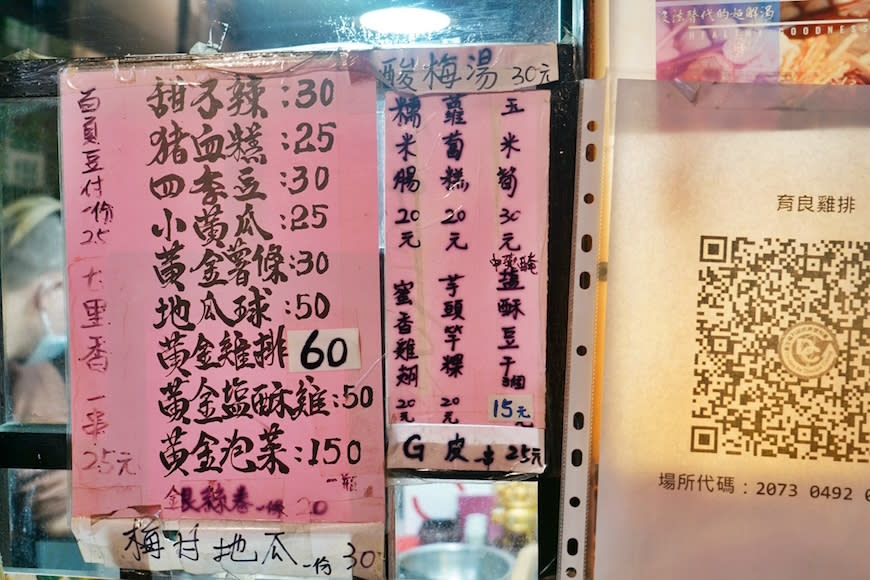 百頁豆付一份25
七里香一串25元
甜不辣:30
猪血糕:25
四季豆:30
小黃瓜:25
黃金薯條:30
地瓜球:50
黃金雞排60
黃金塩酥雞:50
黃金泡菜:150
一瓶
銀絲卷一條20
梅甘地瓜一份30
酸梅湯30元
玉米筍30元
蘿蔔糕20元
糯米腸20元
塩酥豆干
15元
芋頭竿粿20元
蜜香雞翅20元
G皮一串25元
HEALTHY GOODNESS
育良雞排
場所代碼：2073 0492 0